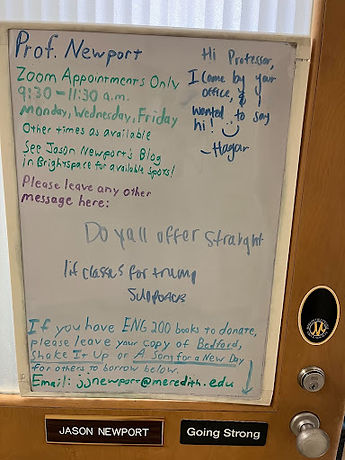 Prof. Newport
Zoom Appointments Only
9:30-11:30 a.m.
Monday, Wednesday, Friday
Other times as available
See Jason Newport's Blog
in Brightspace for available spots!
Please leave any other
message here:
Hi Professor,
I came by your
office, & I
wanted to say
hi!
-Hagar
Do yall offer straight
lit classes for trump
If you have ENG 200 books to donate,
please leave your copy of Bedford,
Shake It Up or A Song for a New Day
for others to borrow below.
Email: jjnewport@meredith.edu
JASON NEWPORT
Going Strong